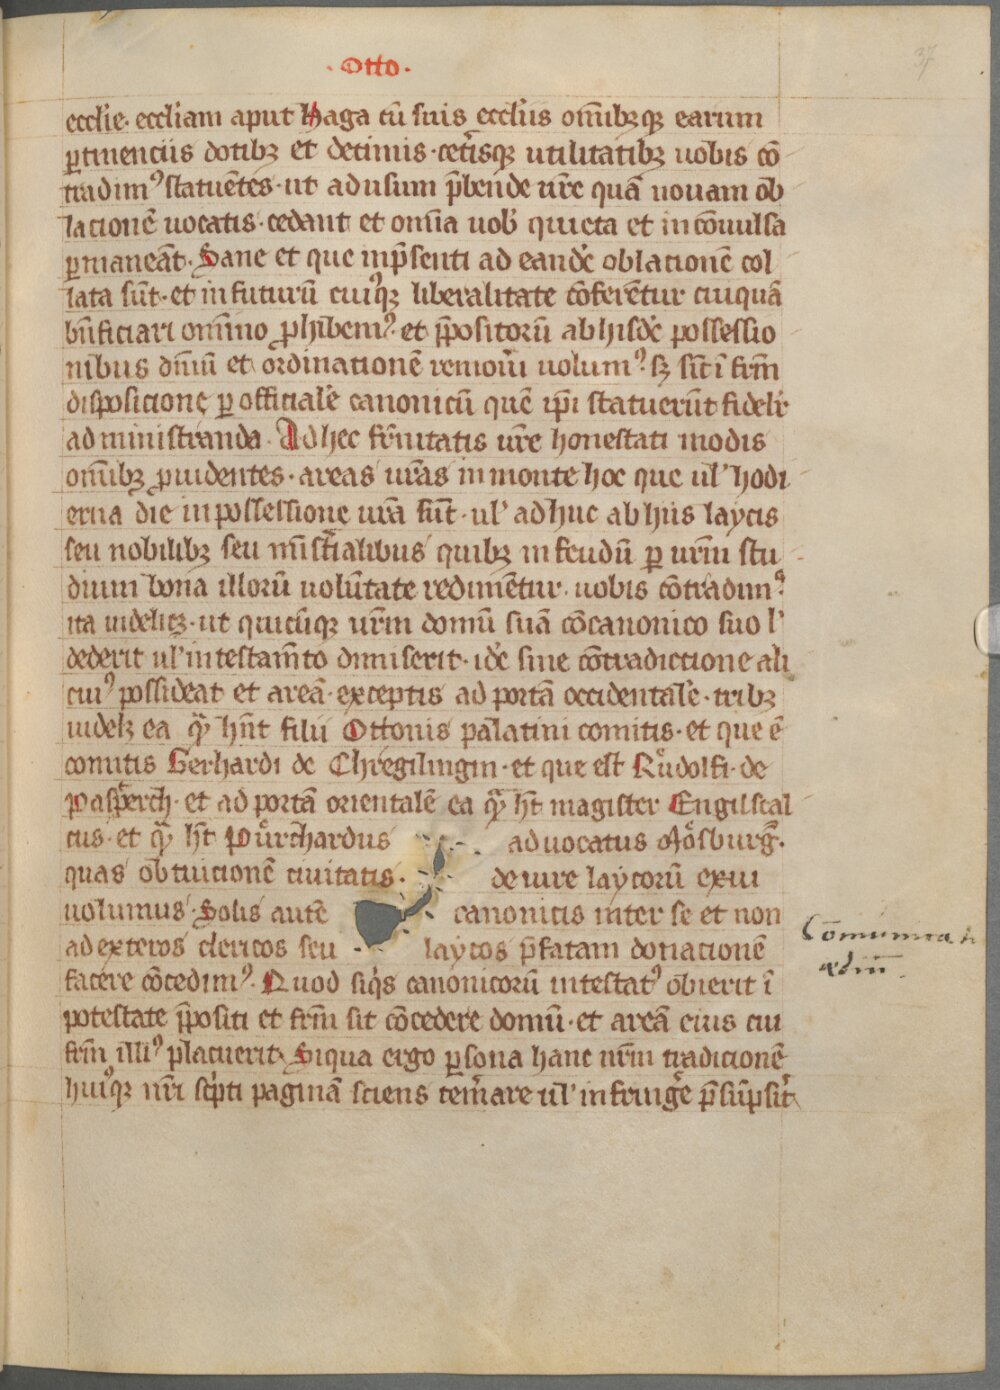 ·Otto·
37
ecclīe· ecclīam aput Haga cū suis ecclīis om̄ibꝫqꝫ earum
ꝑtinenciis dotibꝫ et decimis·cet̄isqꝫ utilitatibꝫ uobis cō
tradimꝰ statuētes·ut ad usum p̄bende ur̄e quā nouam ob
lacionē uocatis·cedant et om̄ia uob̄ quieta et inconuulsa
ꝑmaneāt· Sane et que in p̄senti ad eandē oblacionē col
lata sūt·et in futurū cuiꝰqꝫ liberalitate cōferētur cuiquā
bn̄ficiari om̄ino ꝓhibemꝰ·et p̄positorū ab hisdē possessio
nibus dn̄iū et ordinationē remou̅i uolumꝰ·sꝫ sīt ī fr̄m
disposicione ꝑ officialē canonicū quē ip̄i statuerūt fidelr̄
administranda· Ad hec fr̄nitatis ur̄e honestati modis
om̄ibꝫ ꝓuidentes·areas ur̄as in monte hoc que ul᾽ hodi
erna die in possessione ur̄a sūt·ul᾽ adhuc ab hiis laycis
seu nobilibꝫ seu mīst̄ialibus quibꝫ in feudū ꝑ ur̄m stu
dium bona illorū uolūtate redimētur·uobis cōtradimꝰ
ita uidelicꝫ·ut quicūqꝫ ur̄m domū suā cōcanonico suo l᾽
dederit ul᾽ in testam̄to dimiserit·idē sine cōtradictione ali
cuiꝰ possideat et areā·exceptis ad portā occidentalē·tribꝫ
uidelꝫ ea q̄ hn̄t filii Ottonis palatini comitis·et que ē
comitis Gerhardi de Chregilingin·et que est Růdolfi·de
Pasperch·et ad portā orientalē ea q̄ ht̄ magister Engilscal
cus·et q̄ ht̄ Půrchardus aduocatus Mosburg̅·
quas ob tuicionē ciuitatis· de iure laycorū exui
uolumus· Solis autē canonicis inter se et non
ad exteros clericos seu laycos p̄fatam donationē
facere cōcedimꝰ· Quod siq̇s canonicorū intestatꝰ obierit ī
potestate p̄positi et fr̄m sit cōcedere domū·et areā eius cui
fr̄m illiꝰ placuerit· Siqua ergo ꝑsona hanc nr̄m tradicionē
huiꝰqꝫ nr̄i sc̄pti paginā sciens tem̄are ul᾽ infring̅e p̄sūpsit̄
ædiu̅.